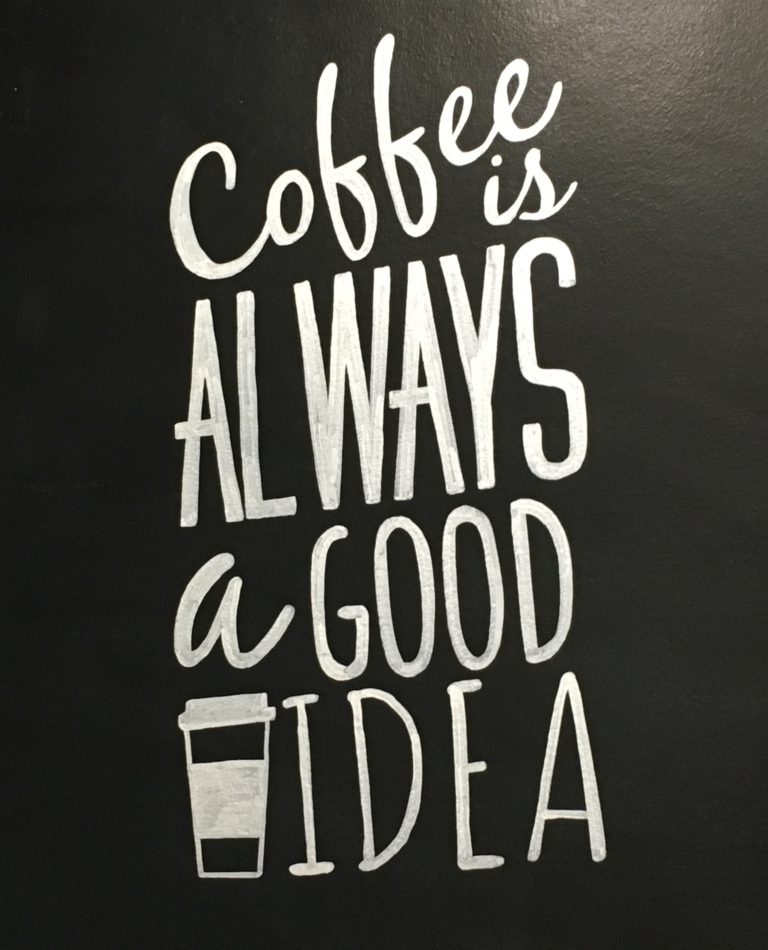 Coffee
is
ALWAYS
a GOOD
IDEA